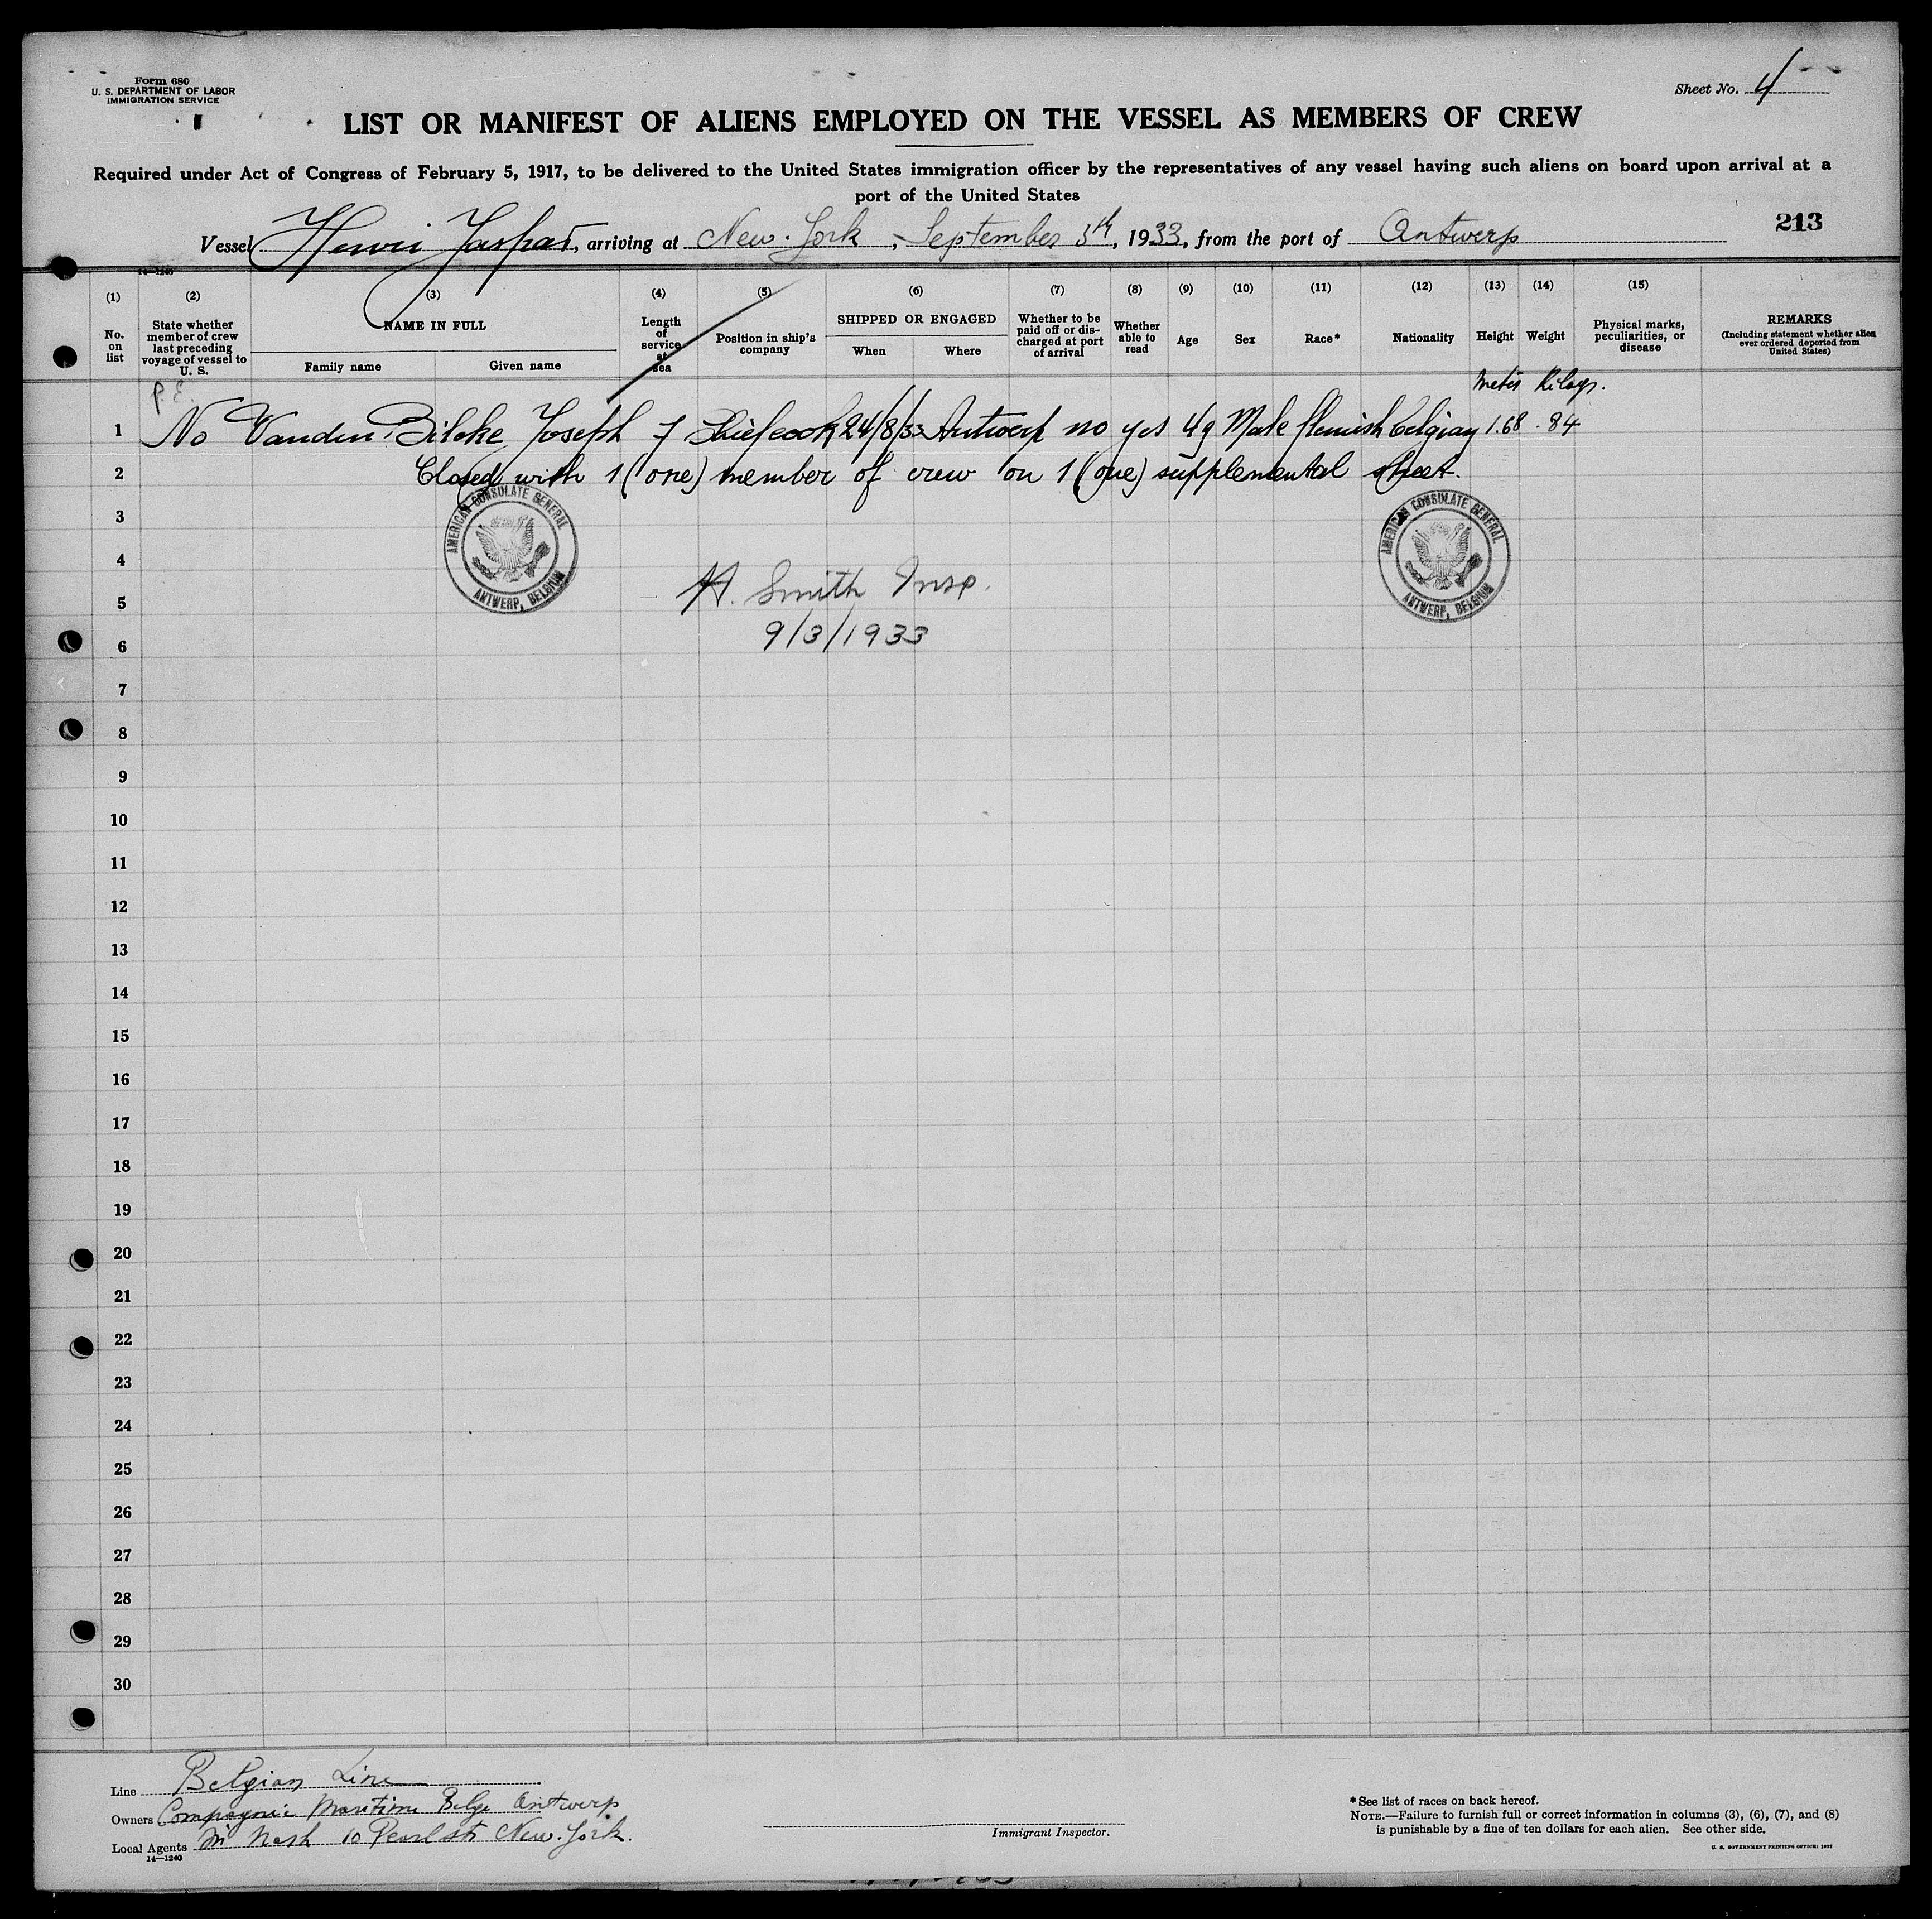 Form 680
U. S. DEPARTMENT OF LABOR
IMMIGRATION SERVICE
Sheet No. 4
LIST OR MANIFEST OF ALIENS EMPLOYED ON THE VESSEL AS MEMBERS OF CREW
Required under Act of Congress of February 5, 1917, to be delivered to the United States immigration officer by the representatives of any vessel having such aliens on board upon arrival at a
port of the United States
213
Vessel Henri Jaspar, arriving at New-York, September 3th, 1933, from the port of Antwerp
14—1240
(1) (2) (3) (4) (5) (6) (7) (8) (9) (10) (11) (12) (13) (14) (15)
No. on list
State whether member of crew last preceding voyage of vessel to U. S.
NAME IN FULL
Family name Given name
Length of service at sea
Position in ship's company
SHIPPED OR ENGAGED
When Where
Whether to be paid off or discharged at port of arrival
Whether able to read
Age
Sex
Race*
Nationality
Height
Weight
Physical marks, peculiarities, or disease
REMARKS
(Including statement whether alien ever ordered deported from United States)
Kilogr.
1 No Vanden Bilcke Joseph 7 Chief cook 24/8/33 Antwerp no yes 49 Male flemish belgian 1.68 84
2 Closed with 1 (one) member of crew on 1 (one) supplemental sheet.
3
AMERICAN CONSULATE GENERAL
ANTWERP, BELGIUM
AMERICAN CONSULATE GENERAL
ANTWERP, BELGIUM
4
H. Smith Insp.
5
9/3/1933
6
7
8
9
10
11
12
13
14
15
16
17
18
19
20
21
22
23
24
25
26
27
28
29
30
Line Belgian Line
Owners Compagnie Maritime Belge Antwerp
Local Agents Mr Nash 10 Pearl str New-York.
14—1240
Immigrant Inspector.
* See list of races on back hereof.
NOTE.—Failure to furnish full or correct information in columns (3), (6), (7), and (8)
is punishable by a fine of ten dollars for each alien. See other side.
U. S. GOVERNMENT PRINTING OFFICE: 1932